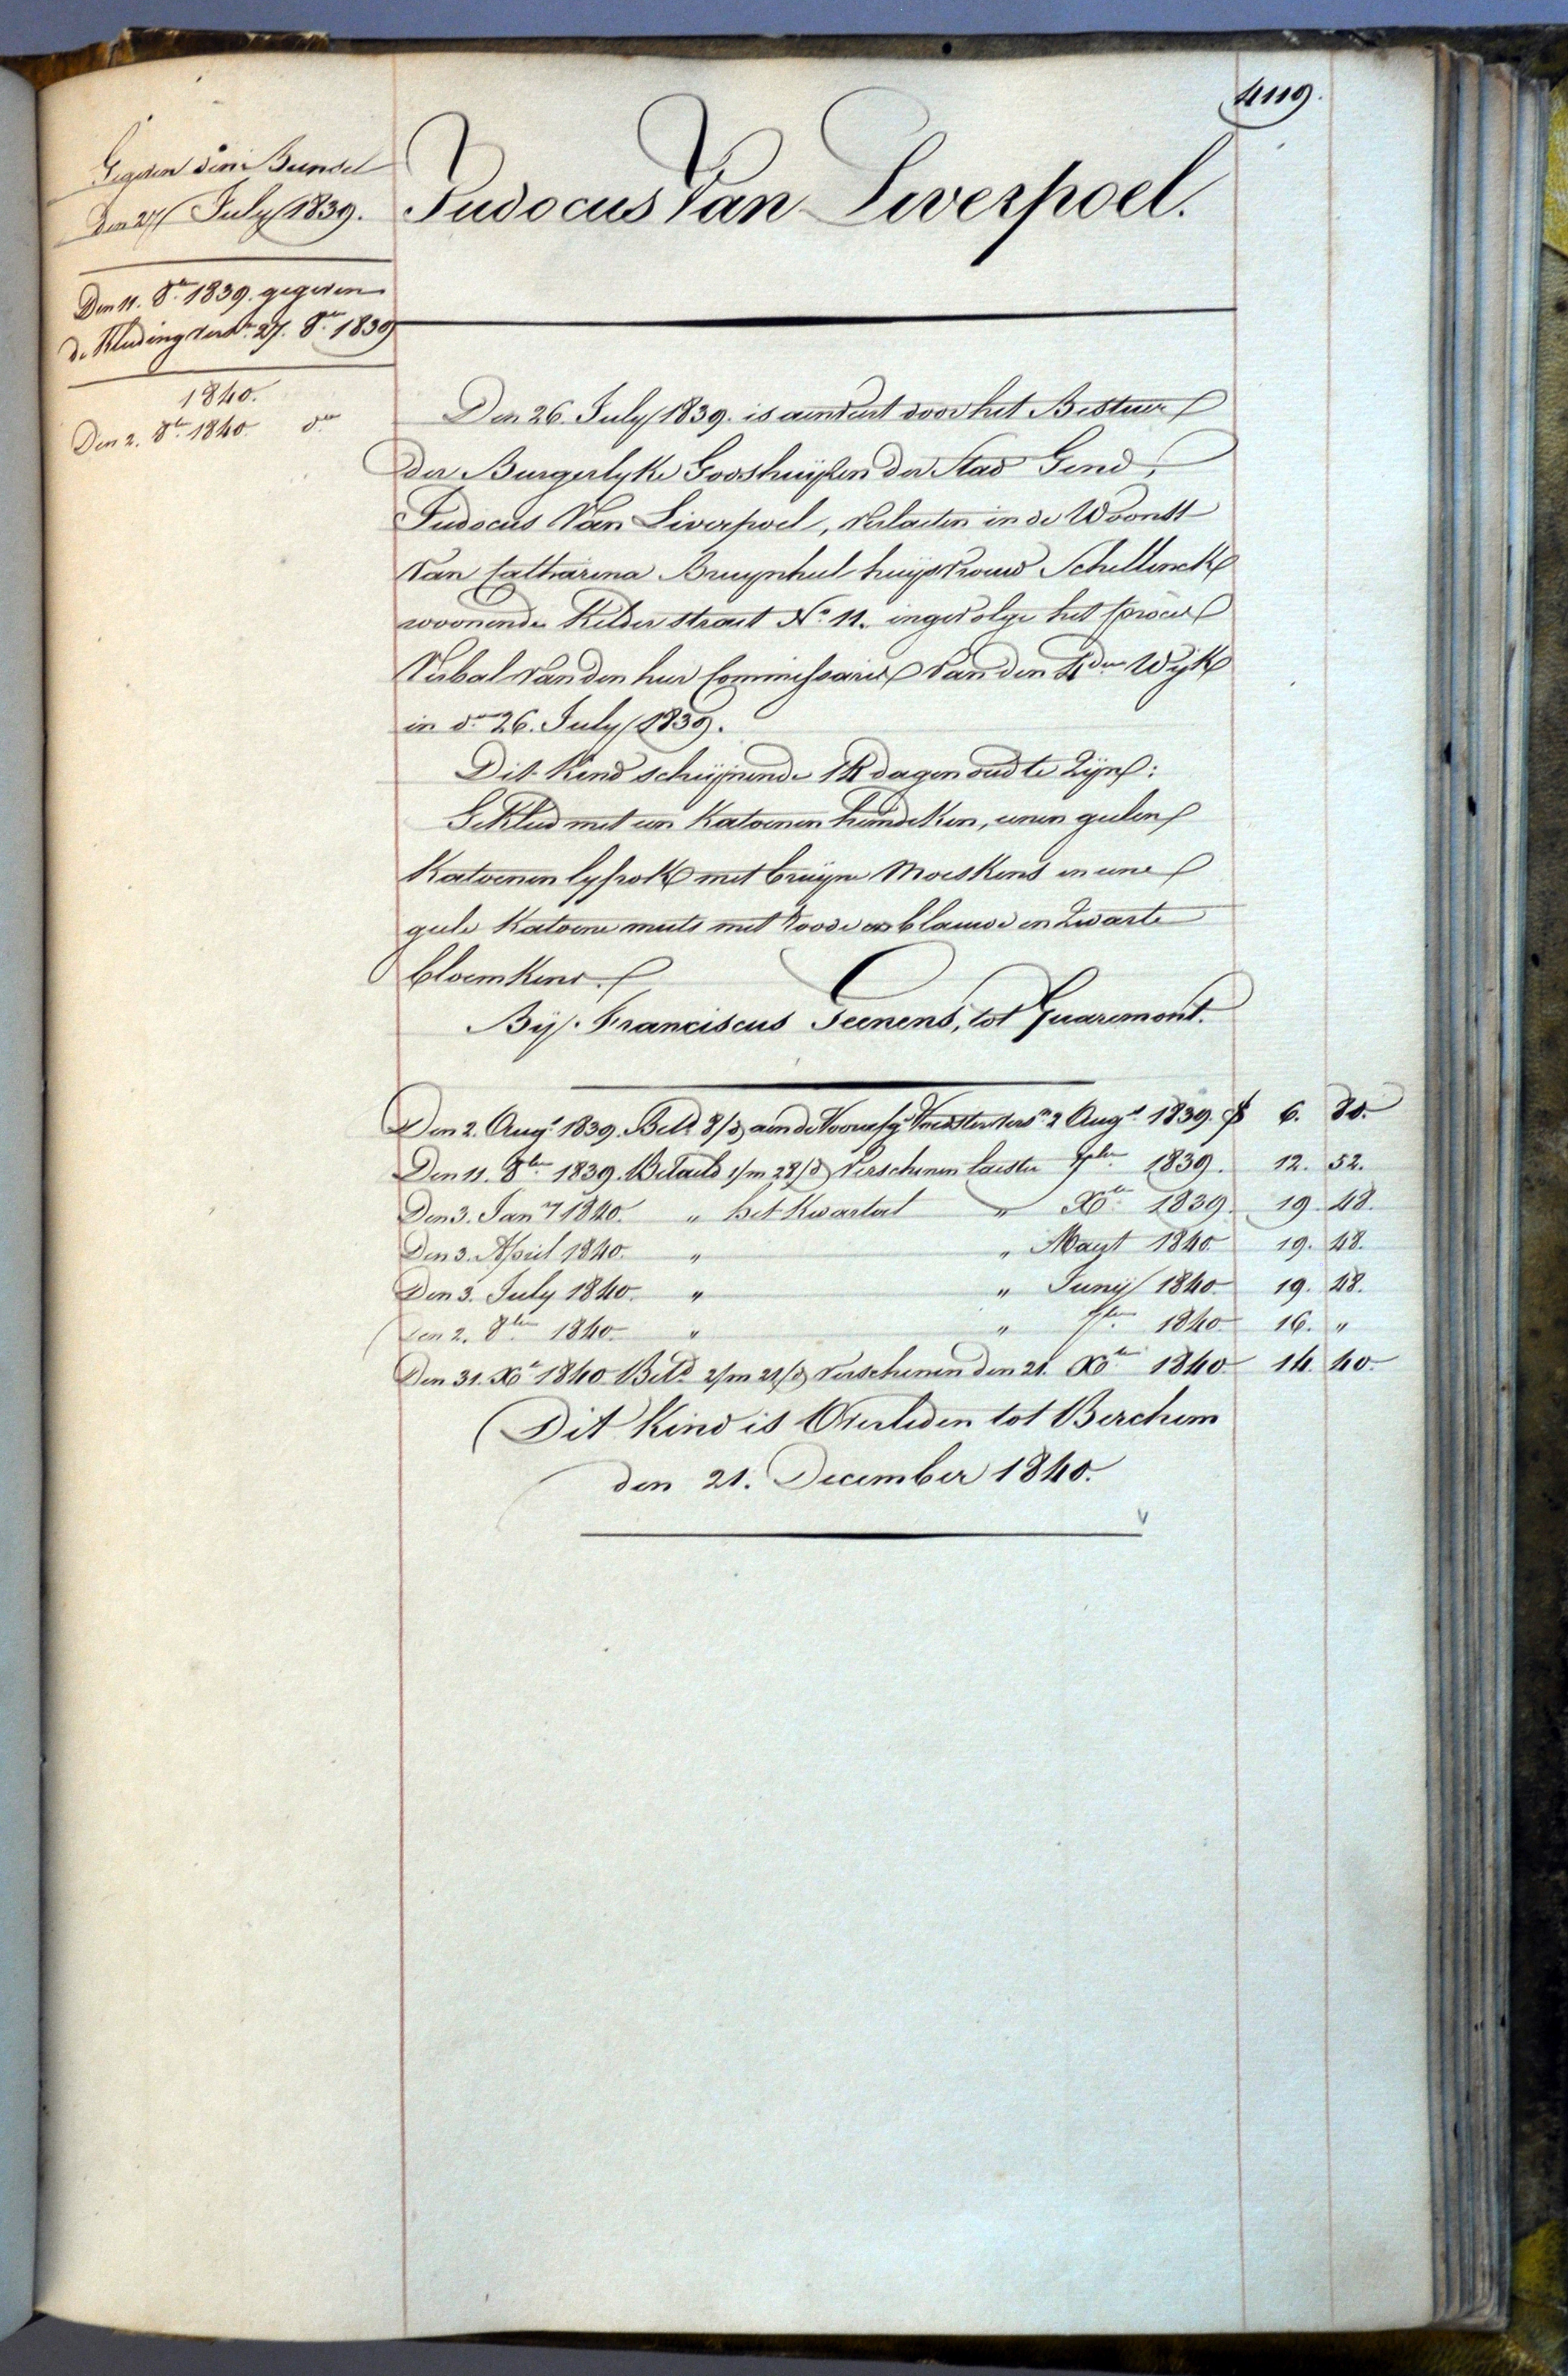 4119.
Gegeven den Bundel
den 27 July 1839.
Den 11. 8.er 1839. gegeven
de Kleding verst. 27. 8.er 1839
1840.
Den 2. 8.er 1840. d.en
Judocus Van Liverpoel.
Den 26. July 1839. is aenveert door het Bestuer
der Burgerlyke Godshuijsen der Stad Gend,
Judocus Van Liverpoel, verlaeten in de Woonst
van Catharina Bruynhul huysvrouw Schellinck
woonende Kelder straet N.o 11. ingevolge het proces
Verbal van den heer Commissaris van den 4.den Wyk
in d.o 26. July 1839.
Dit kind schijnende 14 dagen oud te zijn:
Gekleed met een Katoenen hemdeken, eenen geelen
Katoenen lyfrok met bruijne moeskens en eene
geele Katoene muts met roode en blauwe en zwarte
bloemkens.
Bij Franciscus Teenens, tot Quaremont.
Den 2. Aug.t 1839. Bet.d 8/d aen de Voorafg. Voedster vers.n 2 Aug.t 1839. f 6. 80.
Den 11. 8.ber 1839. Betaeld 1/m 28/d verschenen laeste 7.ber 1839. 12. 52.
Den 3. Jan.y 1840. " het Kwartael " X.er 1839. 19. 48.
Den 3. April 1840. " " Maert 1840. 19. 48.
Den 3. July 1840. " " Junij 1840. 19. 48.
Den 2. 8.ber 1840. " " 7.ber 1840. 16. "
Den 31. X.er 1840 Bet.d 2/m 21/d verschenen den 21. X.er 1840. 14. 40.
Dit kind is Overleden tot Berchem
den 21. December 1840.